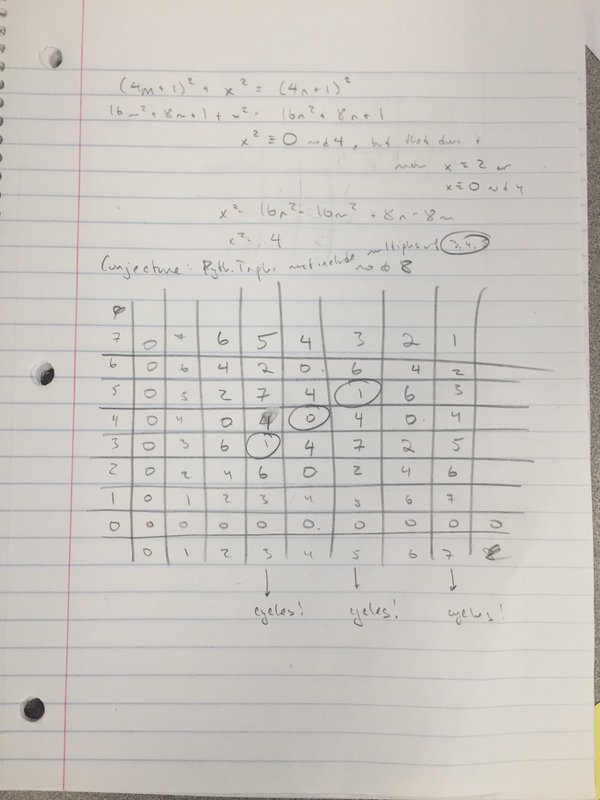 (4m+1)² + x² = (4n+1)²
16m² + 8m + 1 + x² = 16n² + 8n + 1
x² ≡ 0 mod 4, but that doesn't
mean x ≡ 2 or
x ≡ 0 mod 4
x² = 16n² - 16m² + 8n - 8m
x² = 4
Conjecture: Pyth. Triples must include multiples of 3, 4, 5
mod 8
7 0 7 6 5 4 3 2 1
6 0 6 4 2 0 6 4 2
5 0 5 2 7 4 1 6 3
4 0 4 0 4 0 4 0 4
3 0 3 6 1 4 7 2 5
2 0 2 4 6 0 2 4 6
1 0 1 2 3 4 5 6 7
0 0 0 0 0 0 0 0 0 0
0 1 2 3 4 5 6 7 8
cycles! cycles! cycles!